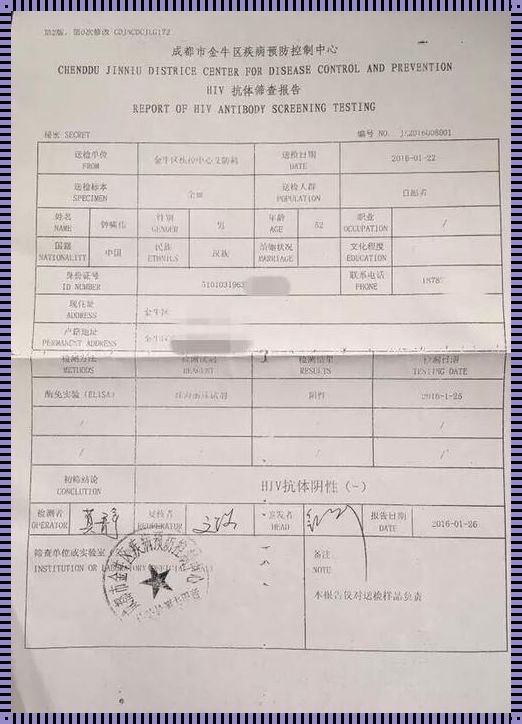 第2版，第0次修改 CDJNCDCJLG172
成都市金牛区疾病预防控制中心
CHENDDU JINNIU DISTRICE CENTER FOR DISEASE CONTROL AND PREVENTION
HIV 抗体筛查报告
REPORT OF HIV ANTIBODY SCREENING TESTING
秘密 SECRET 编号 NO.
送检单位 金牛区疾控中心 送检日期 2016-01-22
FROM DATE
送检标本 全血 送检人群
SPECIMEN POPULATION
姓名 性别 男 年龄 52 职业 /
NAME GENDER AGE OCCUPATION
国籍 中国 民族 汉族 婚姻状况 文化程度
NATIONALITY ETHNICS MARRIAGE EDUCATION
身份证号 5101031963 联系电话 1878
ID NUMBER PHONE
现住址 金牛区
ADDRESS
户籍地址 金牛
PERMANENT ADDRESS
检测方法 检测试剂 检测结果 检测日期
METHODS REAGENT RESULTS TESTING DATE
酶免实验（ELISA） 阴性 2016-1-26
/ / / /
/ / / /
初筛结论 HIV抗体阴性（-）
CONCLUTION
检测者 复核者 签发者 报告日期 2016-01-26
OPERATOR REOPERATOR HEAD DATE
筛查单位或实验室 备注
INSTITUTION OR LABORATORY OFFICIAL SEAL NOTE
本报告仅对送检样品负责